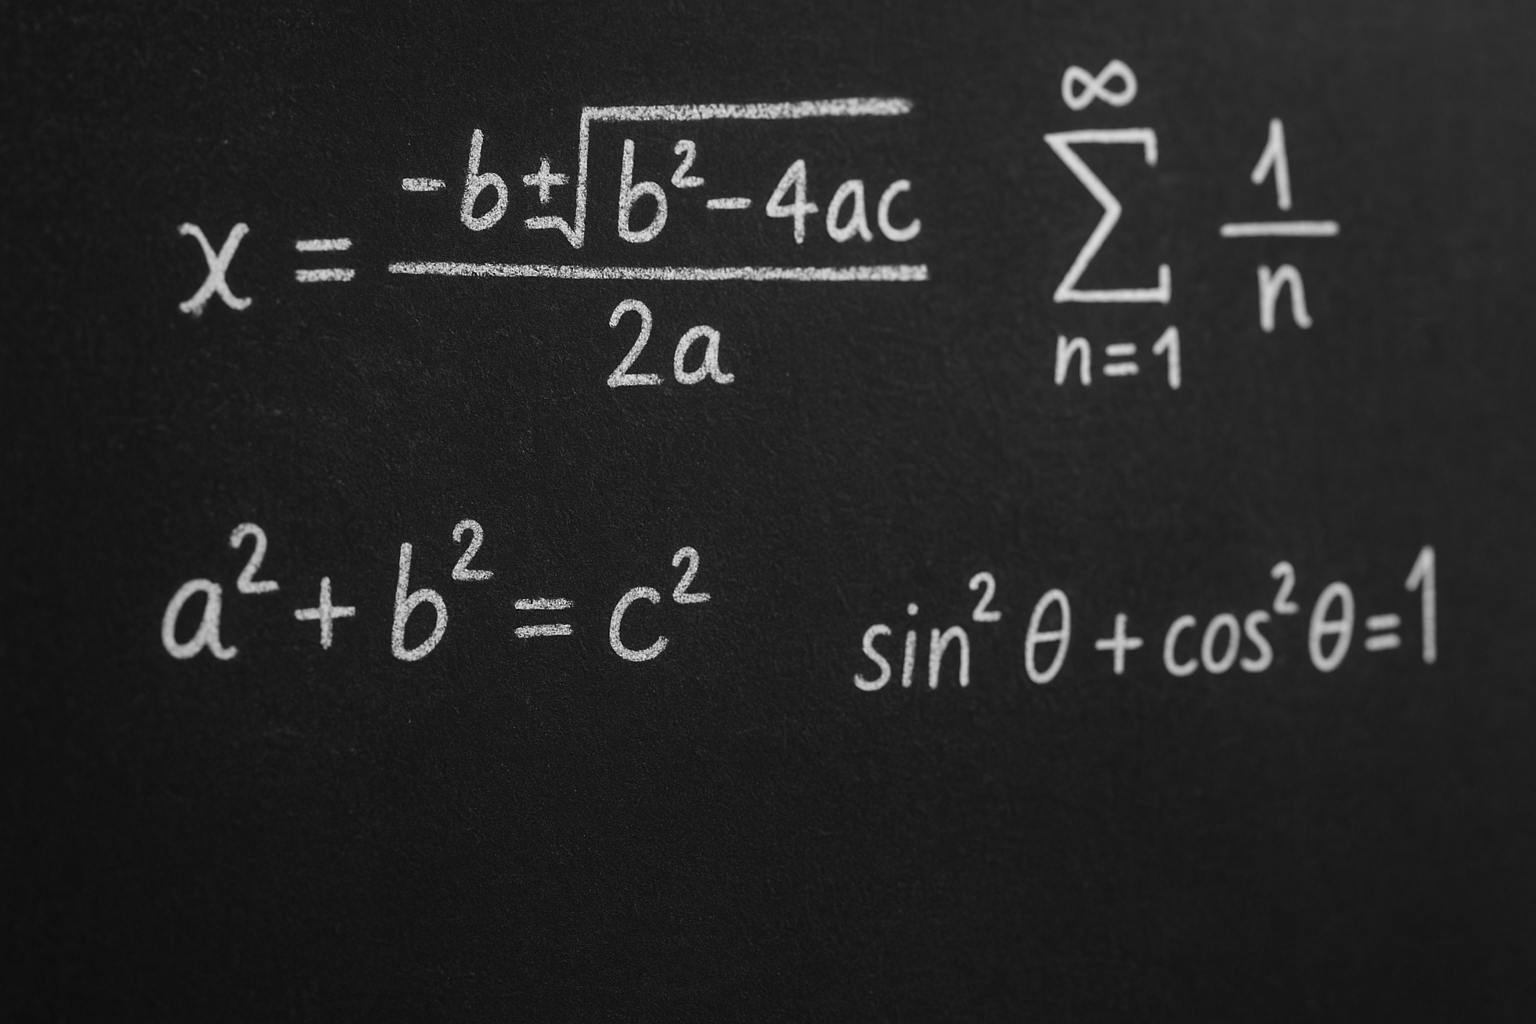 x = -b ± √(b² - 4ac) / 2a
∞ ∑ n=1 1/n
a² + b² = c²
sin² θ + cos² θ = 1